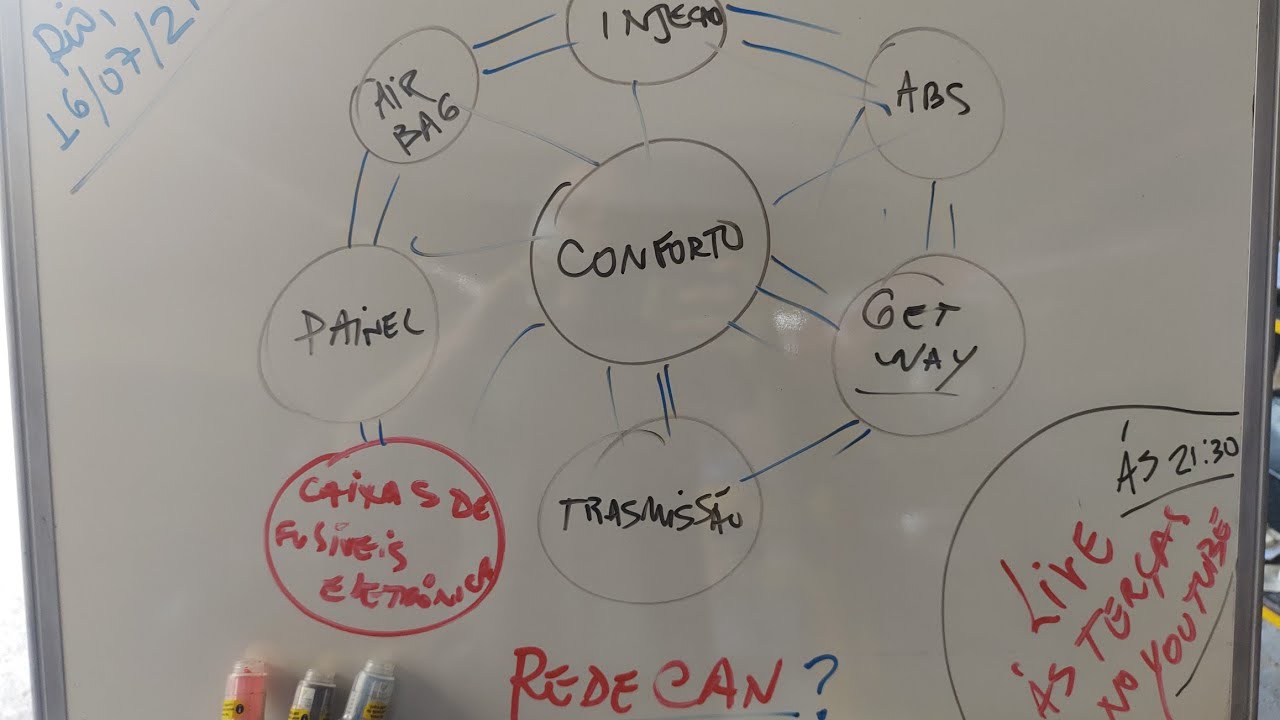 Rio,
16/07/21
INJEÇÃO
AIR
BAG
ABS
CONFORTO
PAINEL
GET
WAY
TRASMISSÃO
CAIXAS DE
FUSÍVEIS
ELETRÔNICA
ÁS 21:30
LIVE
ÁS TERÇAS
NO YOUTUBE
REDE CAN ?